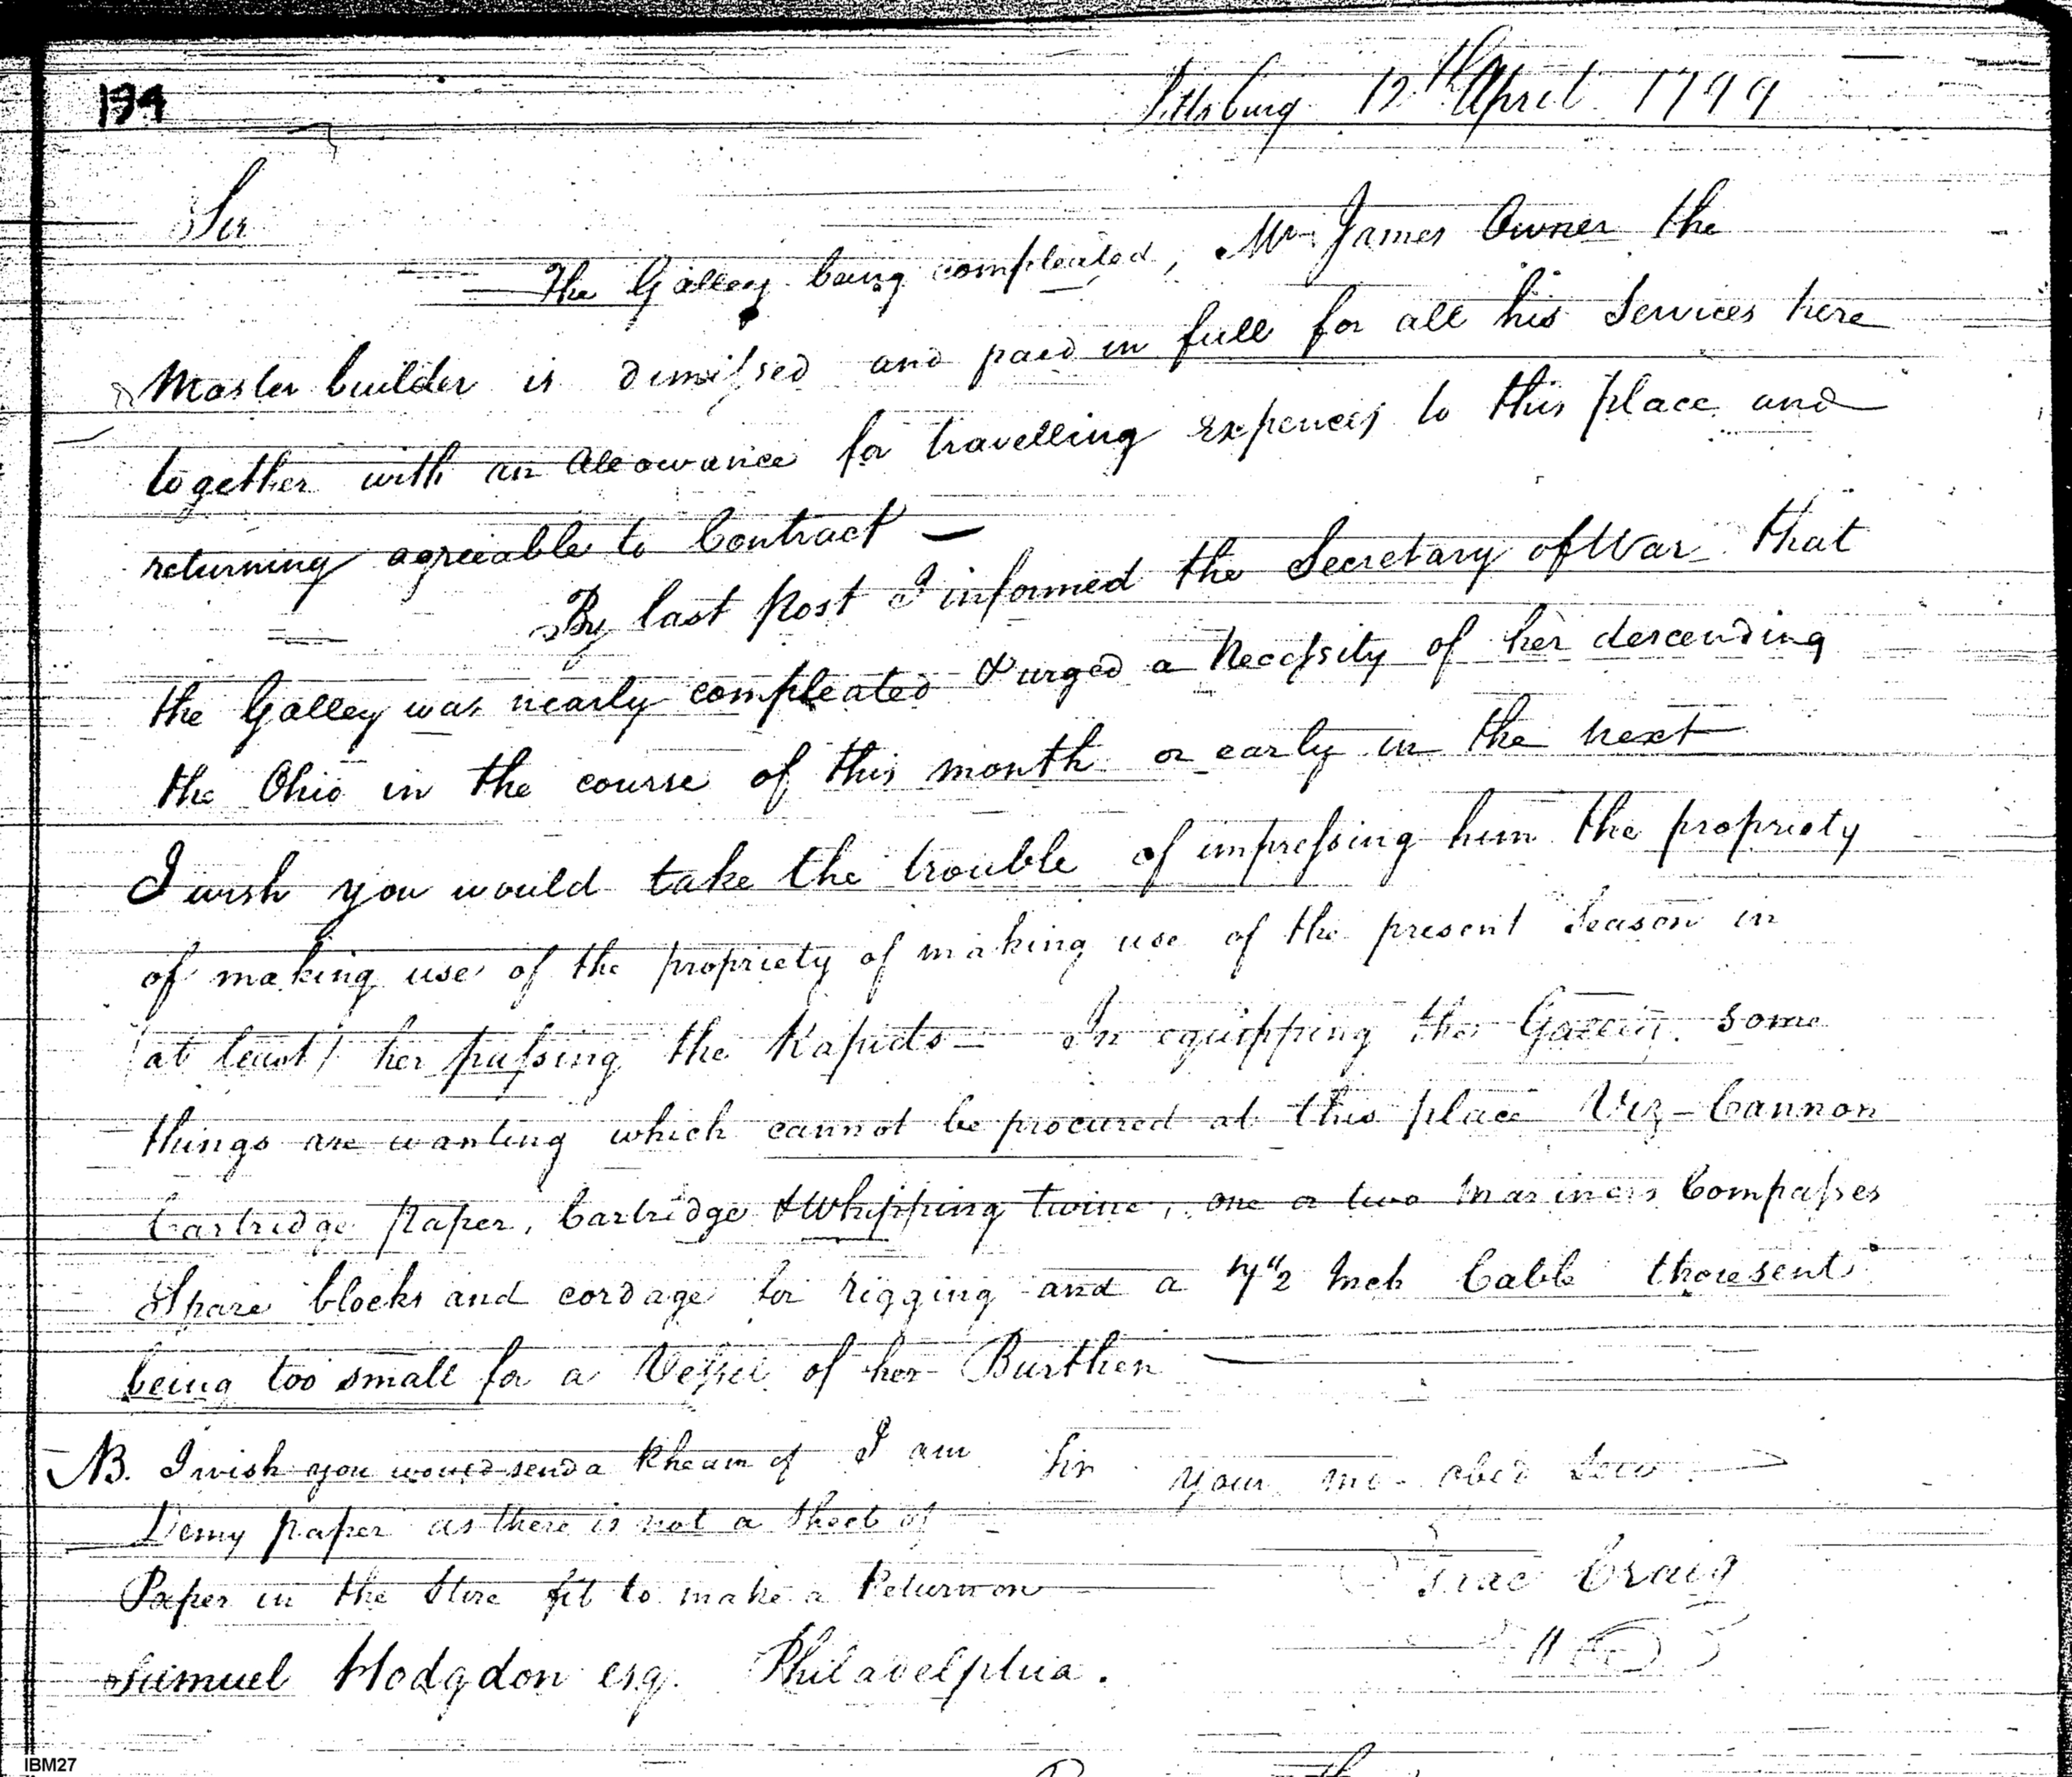 194
Pittsburg 12th April 1799
Sir
The Galley being compleated, Mr James Owner the
Master builder is dimissed and paid in full for all his Services here
together with an Allowance for travelling expences to this place and
returning agreeable to Contract —
By last Post I informed the Secretary of War that
the Galley was nearly compleated & urged a Necessity of her descending
the Ohio in the course of this month or early in the next
I wish you would take the trouble of impressing him the propriety
of making use of the propriety of making use of the present Season in
(at least) her passing the Rapids — In equipping the Galley some
things are wanting which cannot be procured at this place Viz – Cannon
Cartridge Paper, Cartridge & Whipping twine, one or two Mariners Compasses
Spare blocks and cordage for rigging and a 7 1/2 Inch Cable those sent
being too small for a Vessel of her Burthen —
NB. I wish you would send a Rheam of
I am Sir your mo obed Serv
Demy paper as there is not a Sheet of
Paper in the Store fit to make a Return on
Isaac Craig
Samuel Hodgdon esq. Philadelphia.
IBM27